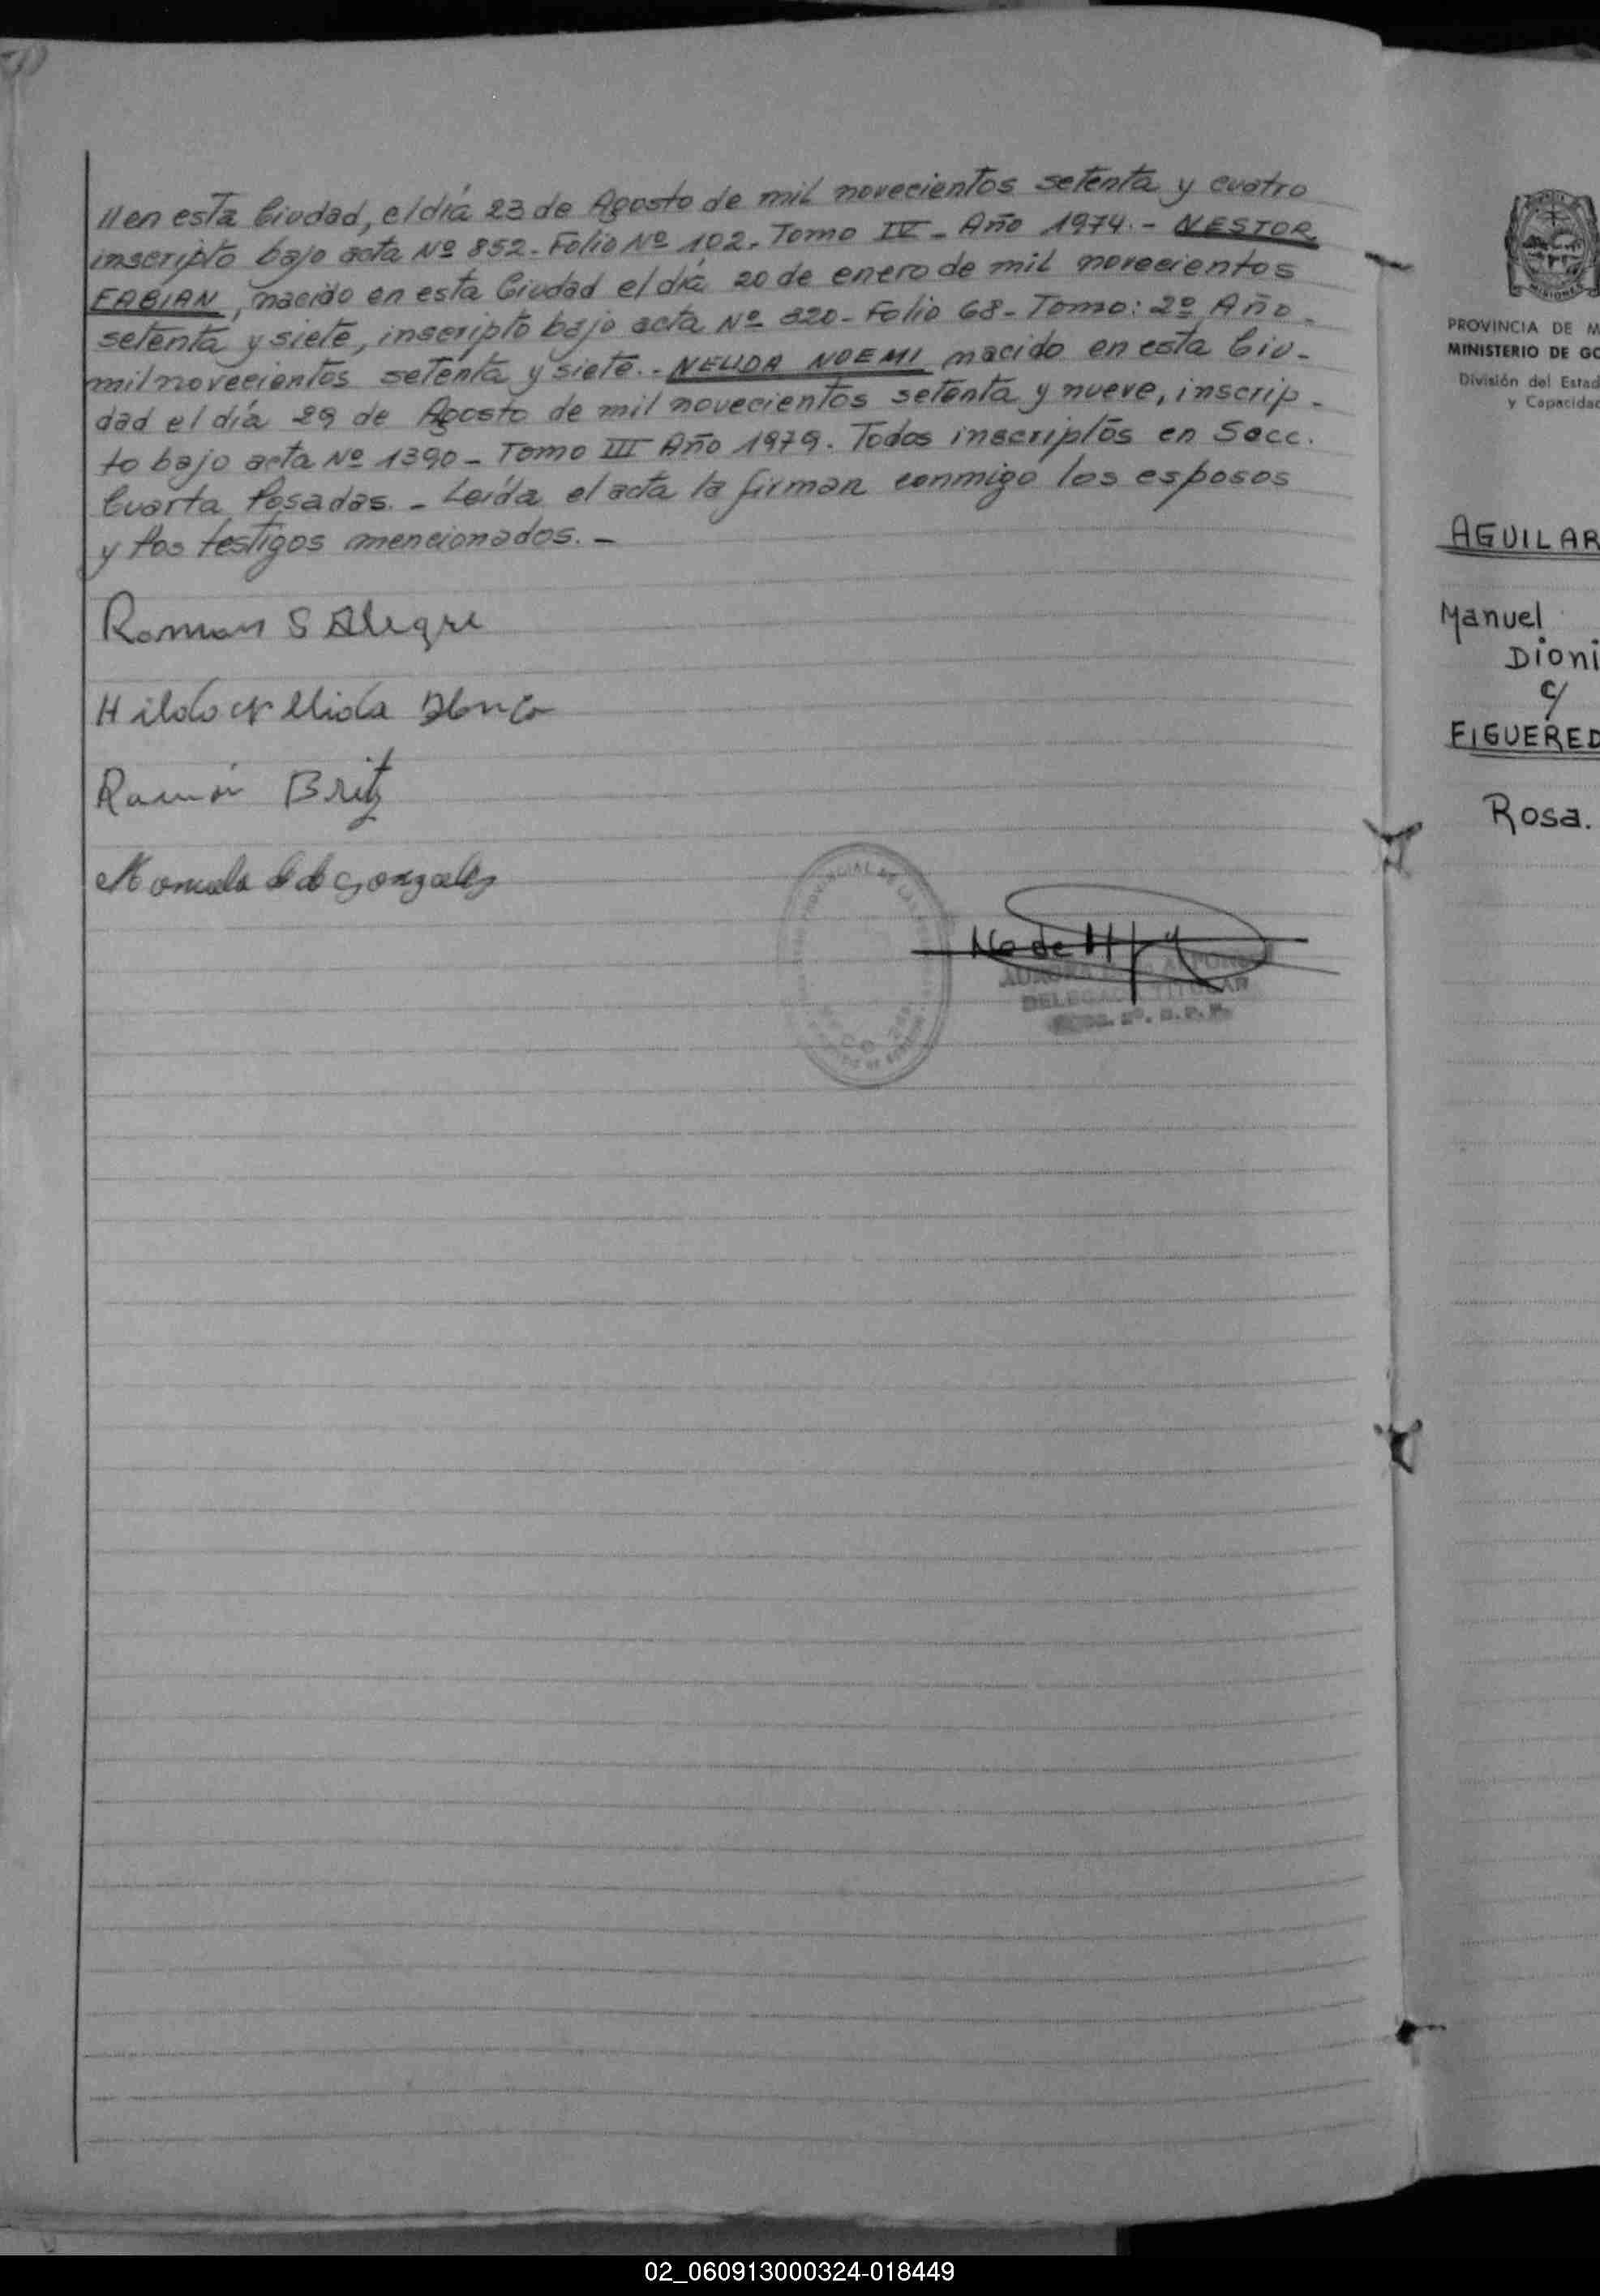 //en esta Ciudad, el día 23 de Agosto de mil novecientos setenta y cuatro
inscripto bajo acta Nº 852. Folio Nº 102. Tomo IV - Año 1974.- NESTOR
FABIAN, nacido en esta Ciudad el día 20 de enero de mil novecientos
setenta y siete, inscripto bajo acta Nº 320 - Folio 68 - Tomo: 2º Año -
mil novecientos setenta y siete.- NELIDA NOEMI nacido en esta Ciu-
dad el día 29 de Agosto de mil novecientos setenta y nueve, inscrip-
to bajo acta Nº 1390 - Tomo III Año 1979. Todos inscriptos en Secc.
Cuarta Posadas. - Leída el acta la firman conmigo los esposos
y los testigos mencionados. -
Ramon S Alegre
Ramón Britz
Gonzalez
PROVINCIAL DE LAS
DELEGADA TITULAR
PROVINCIA DE M
MINISTERIO DE GO
División del Estad
y Capacidad
AGUILAR
Manuel
Dioni
c/
FIGUERED
Rosa.
02_060913000324-018449